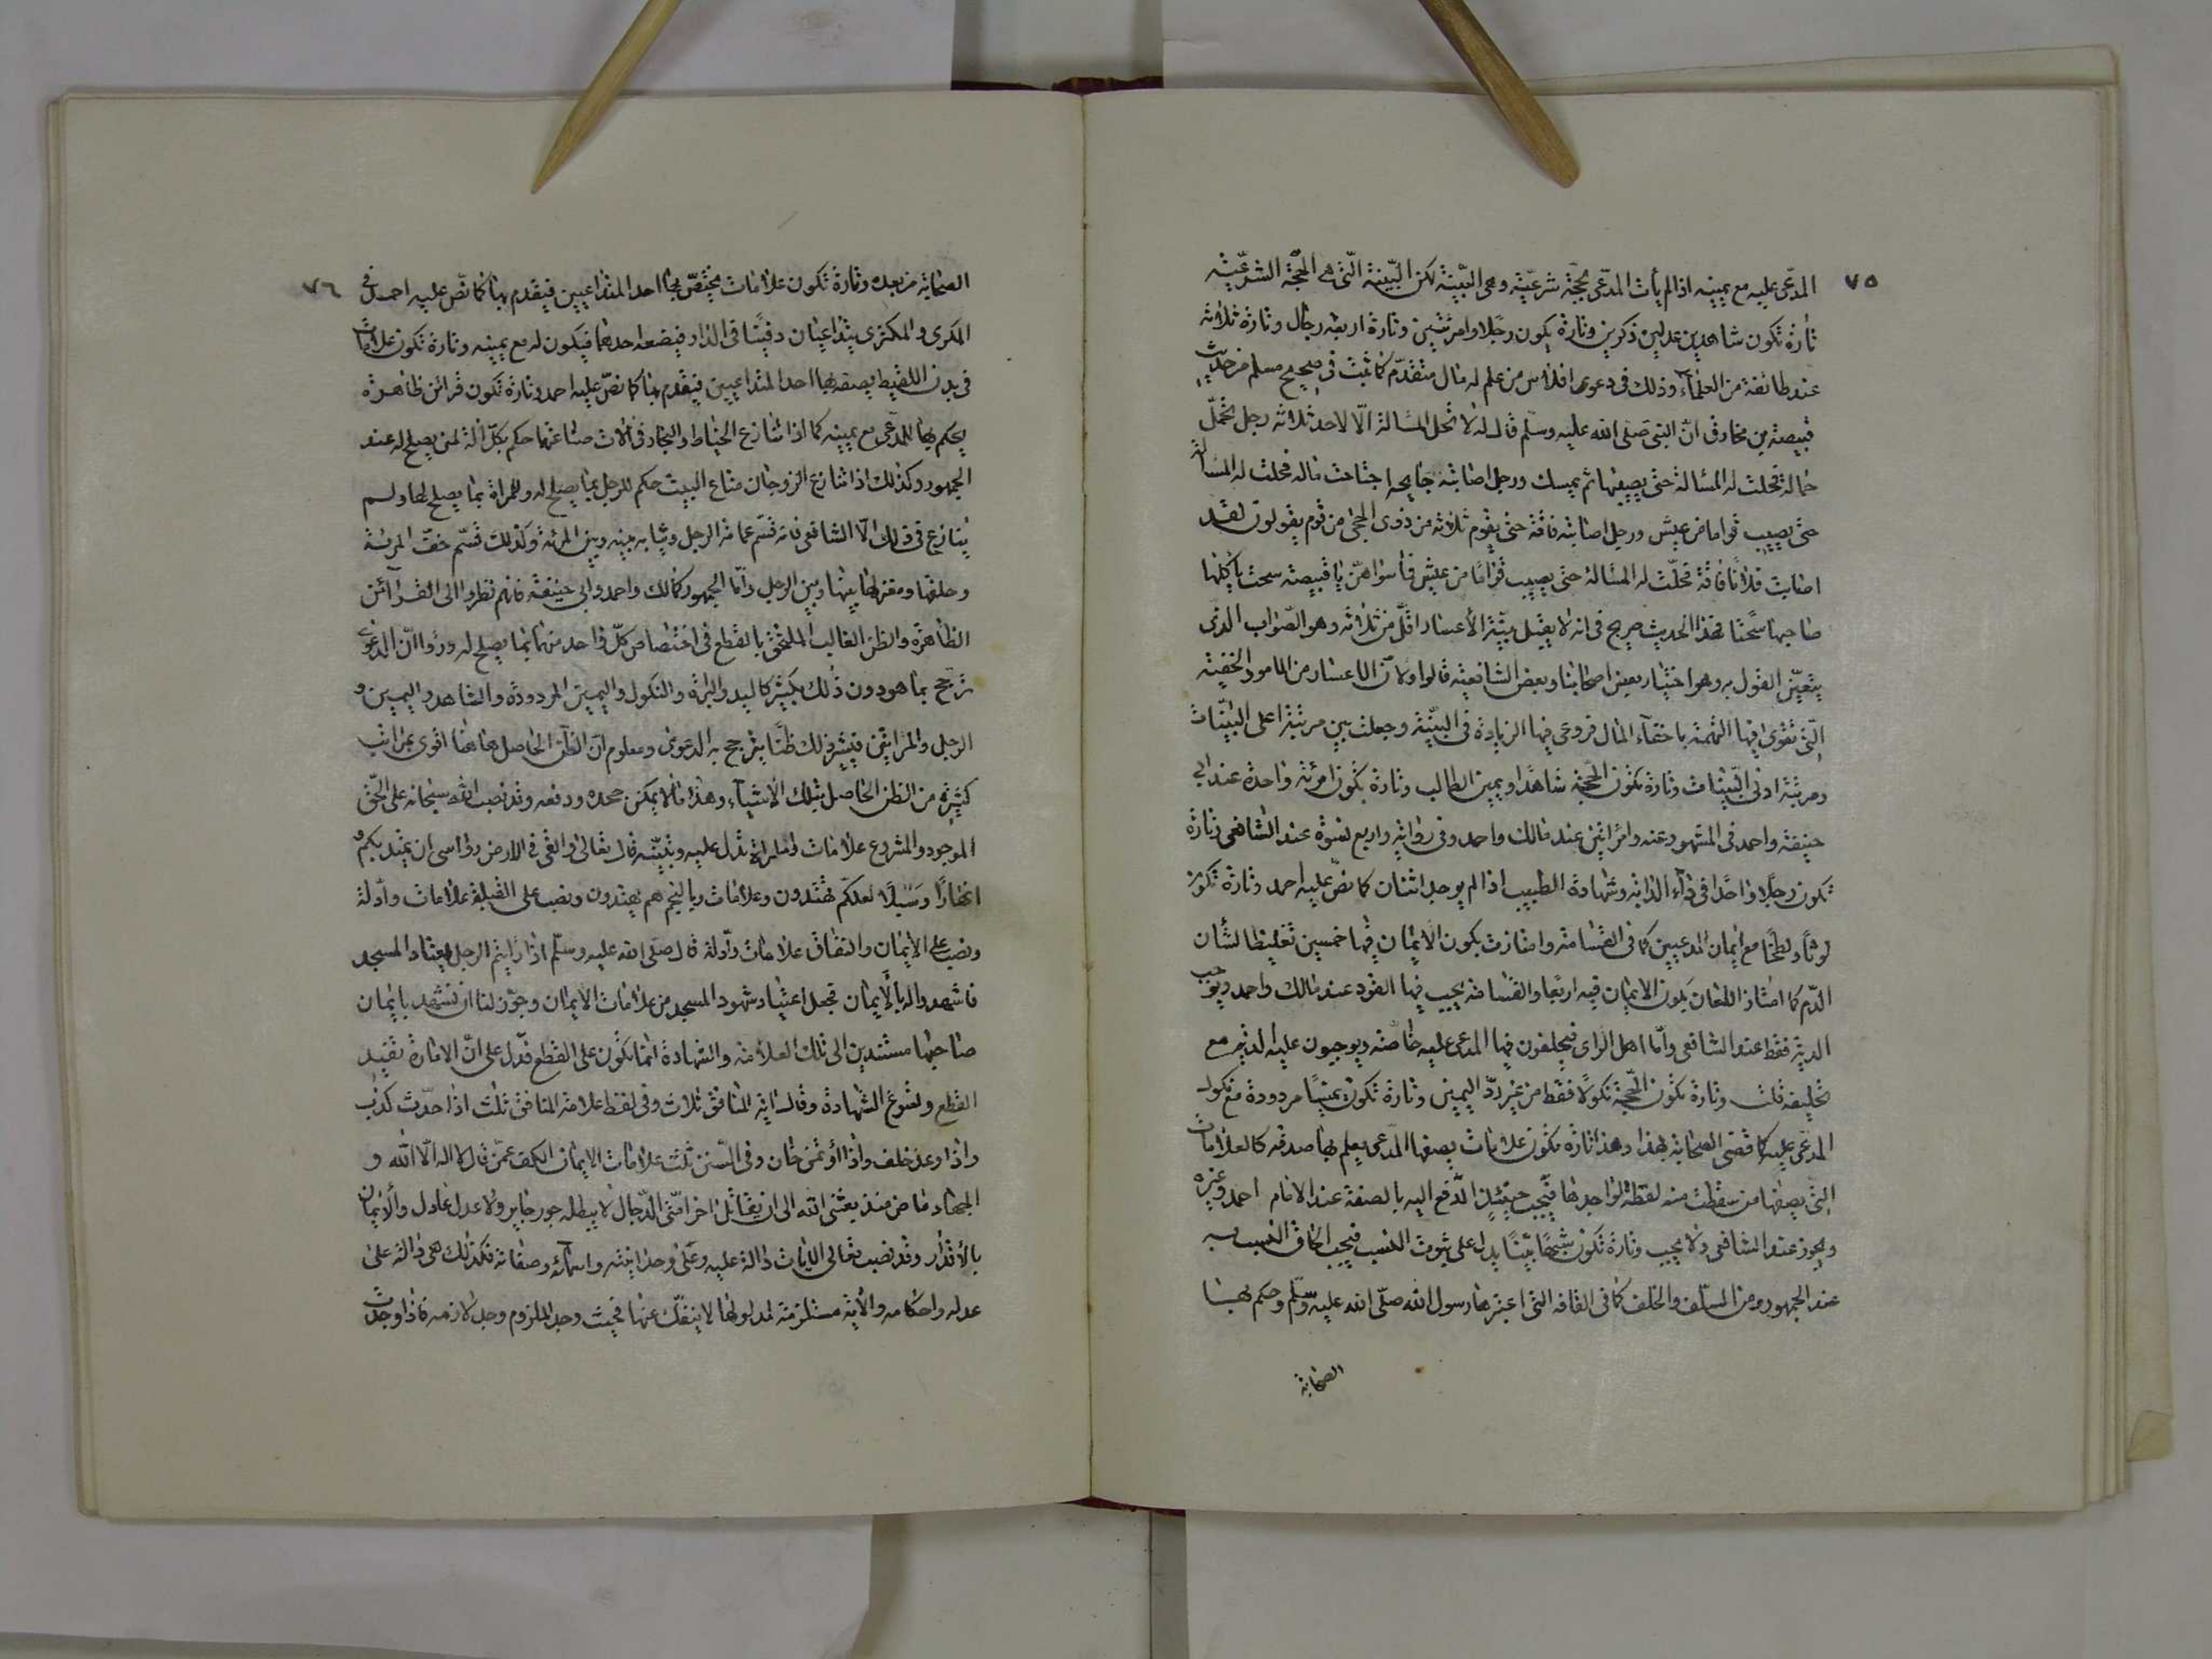 ٧٥
المدّعى عليه مع يمينه اذا لم يأت المدّعى بحجّة شرعيّة وهى البيّنة لكن البيّنة الّتى هى الحجّة الشرعيّة
تارة تكون شاهدين عدلين ذكرين وتارة يكون رجلا وامرئتين وتارة اربعه رجال وتارة ثلاثه
عند طائفة من العلمآء وذلك فى دعوى افلاس من علم له مال متقدّم كما ثبت فى صحيح مسلم من حديث
قبيصة بن مخارق انّ النبى صلى الله عليه وسلّم قال له لا تحل المسالة الّا لاحد ثلاثه رجل تحمّل
حمالة فحلت له المسالة حتى يصيبها ثم يمسك ورجل اصابته جايحه اجتاحت ماله فحلت له المسالة
حتى يصيب قواما من عيش ورجل اصابته فاقة حتى يقوم ثلاثه من ذوى الحجى من قوم يقولون لقد
اصابت فلانا فاقة فحلّت له المسالة حتى يصيب قواما من عيش فما سواهنّ يا قبيصة سحت ياكلها
صاحبها سحتا فهذا الحديث صريح فى انه لا يقبل بيّنة الأعسار اقلّ من ثلاثه وهو الصّواب الذى
يتعيّن القول به وهو اختيار بعض اصحابنا وبعض الشافعيّة قالوا ولانّ الاعسار من الامور الخفية
الّتى تقوى فيها التهمة باخفآء المال فروعى فيها الزيادة فى البيّنة وجعلت بين مرتبة اعلى البيّنات
ومرتبة ادنى البيّنات وتارة تكون الحجّة شاهدا ويمين الطالب وتارة تكون امرئة واحدة عند ابى
حنيفة واحمد فى المشهور عنه وامراتين عند مالك واحمد وفى رواية واربع نسوة عند الشافعى وتارة
تكون رجلا واحدا فى دآء الدابه وشهادة الطبيب اذا لم يوجد اثنان كما نصّ عليه احمد وتارة تكون
لوثا ولطخا مع ايمان المدعيين كما فى القسامة وامتازت بكون الايمان فيها خمسين تغليظا لشأن
الدّم كما امتاز اللعان بكون الايمان فيه اربعا والقسامة يجيب فيها القود عند مالك واحمد ويوجب
الدية فقط عند الشافعى وأمّا اهل الراى فيحلفون فيها المدعى عليه خاصّه ويوجبون عليه الدية مع
تحليفه قلت وتارة تكون الحجّة نكولا فقط من غير ردّ اليمين وتارة تكون يمينًا مردودة مع نكول
المدّعى عليه كما قضى الصحابة بهذا وهذا وتارة تكون علامات يصفها المدّعى يعلم بها صدقه كالعلامات
التى يصفها من سقطت منه لقطة لواجدها فيجب حينئذٍ الدّفع اليه بالصفة عند الامام احمد وغيره
ويجوز عند الشافعى ولا يجيب وتارة تكون شبهًا بيّنا يدل على ثبوت النسب فيجب الحاق النسب به
عند الجمهور ومن السّلف والخلف كما فى القافه التى اعتبرها رسول الله صلّى الله عليه وسلّم وحكم بها
الصحابة
٧٦
الصحابة من بعده وتارة تكون علامات يختصّ بها احد المتداعيين فيقدم بها كما نصّ عليه احمد فى
المكرى والمكترى يتداعيان دفينًا فى الدار فيصفه احدهما فيكون له مع يمينه وتارة تكون علامات
فى بدن اللقيط يصفه بها احد المتداعيين فيقدم بها كما نصّ عليه احمد وتارة تكون قرائن ظاهرة
يحكم بها للمدّعى مع يمينه كما اذا تنازع الخياط والنجار فى آلات صناعتهما حكم بكلّ آلة لمن يصلح له عند
الجمهور وكذلك اذا تنازع الزوجان متاع البيت حكم للرجل بما يصلح له وللمراة بما يصلح لها ولم
ينازع فى ذلك الّا الشافعى فانه قسّم عمامة الرجل وثيابه بينه وبين المرئة وكذلك قسّم خفّ المرئة
وحلقها ومغزلها بينها وبين الرجل وامّا الجمهور كمالك واحمد وابى حنيفة فانهم نظروا الى القرآئن
الظاهرة والظن الغالب الملتحق بالقطع فى اختصاص كلّ واحد منهما بما يصلح له ورؤا انّ الدعوى
ترجح بما هو دون ذلك بكثير كاليد والبراة والنكول واليمين المردودة والشاهد واليمين و
الرجل والمراتين فيثير ذلك ظنّا يترجح به الدعوى ومعلوم انّ الظنّ الحاصل هاهنا اقوى بمراتب
كثيرة من الظن الحاصل بتلك الأشياء وهذا مما لا يمكن جحده ودفعه وقد نصب الله سبحانه على الحق
الموجود والمشروع علامات وامارات تدل عليه وتبيّنه قال تعالى والقى فى الارض رواسى ان تميد بكم و
انهارًا وسبلًا لعلكم تهتدون وعلامات وبالنجم هم يهتدون ونصب على القبلة علامات وأدلة
ونصب على الايمان والنفاق علامات وأدلة قال صلى الله عليه وسلّم اذا رايتم الرجل يعتاد المسجد
فاشهدوا له بالأيمان فجعل اعتياد شهود المسجد من علامات الايمان وجوّز لنا ان نشهد بايمان
صاحبها مستندين الى تلك العلامة والشهادة انما تكون على القطع فدّل على انّ الامارة تفيد
القطع وتسوغ الشهادة وقال اية المنافق ثلاث وفى لفظ علامة المنافق ثلث اذا حدّث كذب
واذا وعد خلف واذا أوتمن خان وفى السّنن ثلث علامات الايمان الكف عمّن قال لا اله الّا الله و
الجهاد ماض منذ بعثنى الله الى ان يقاتل اخر امّتى الدّجال لا يبطله جور جاير ولا عدل عادل والأيمان
بالأقدار وقد نصب تعالى الايات دالة عليه وعلى وحدانيته واسمائه وصفاته فكذلك هى دالة على
عدله واحكامه والأية مستلزمة لمدلولها لا ينفك عنها فحيث وجد الملزوم وجد لازمه فاذا وجدت